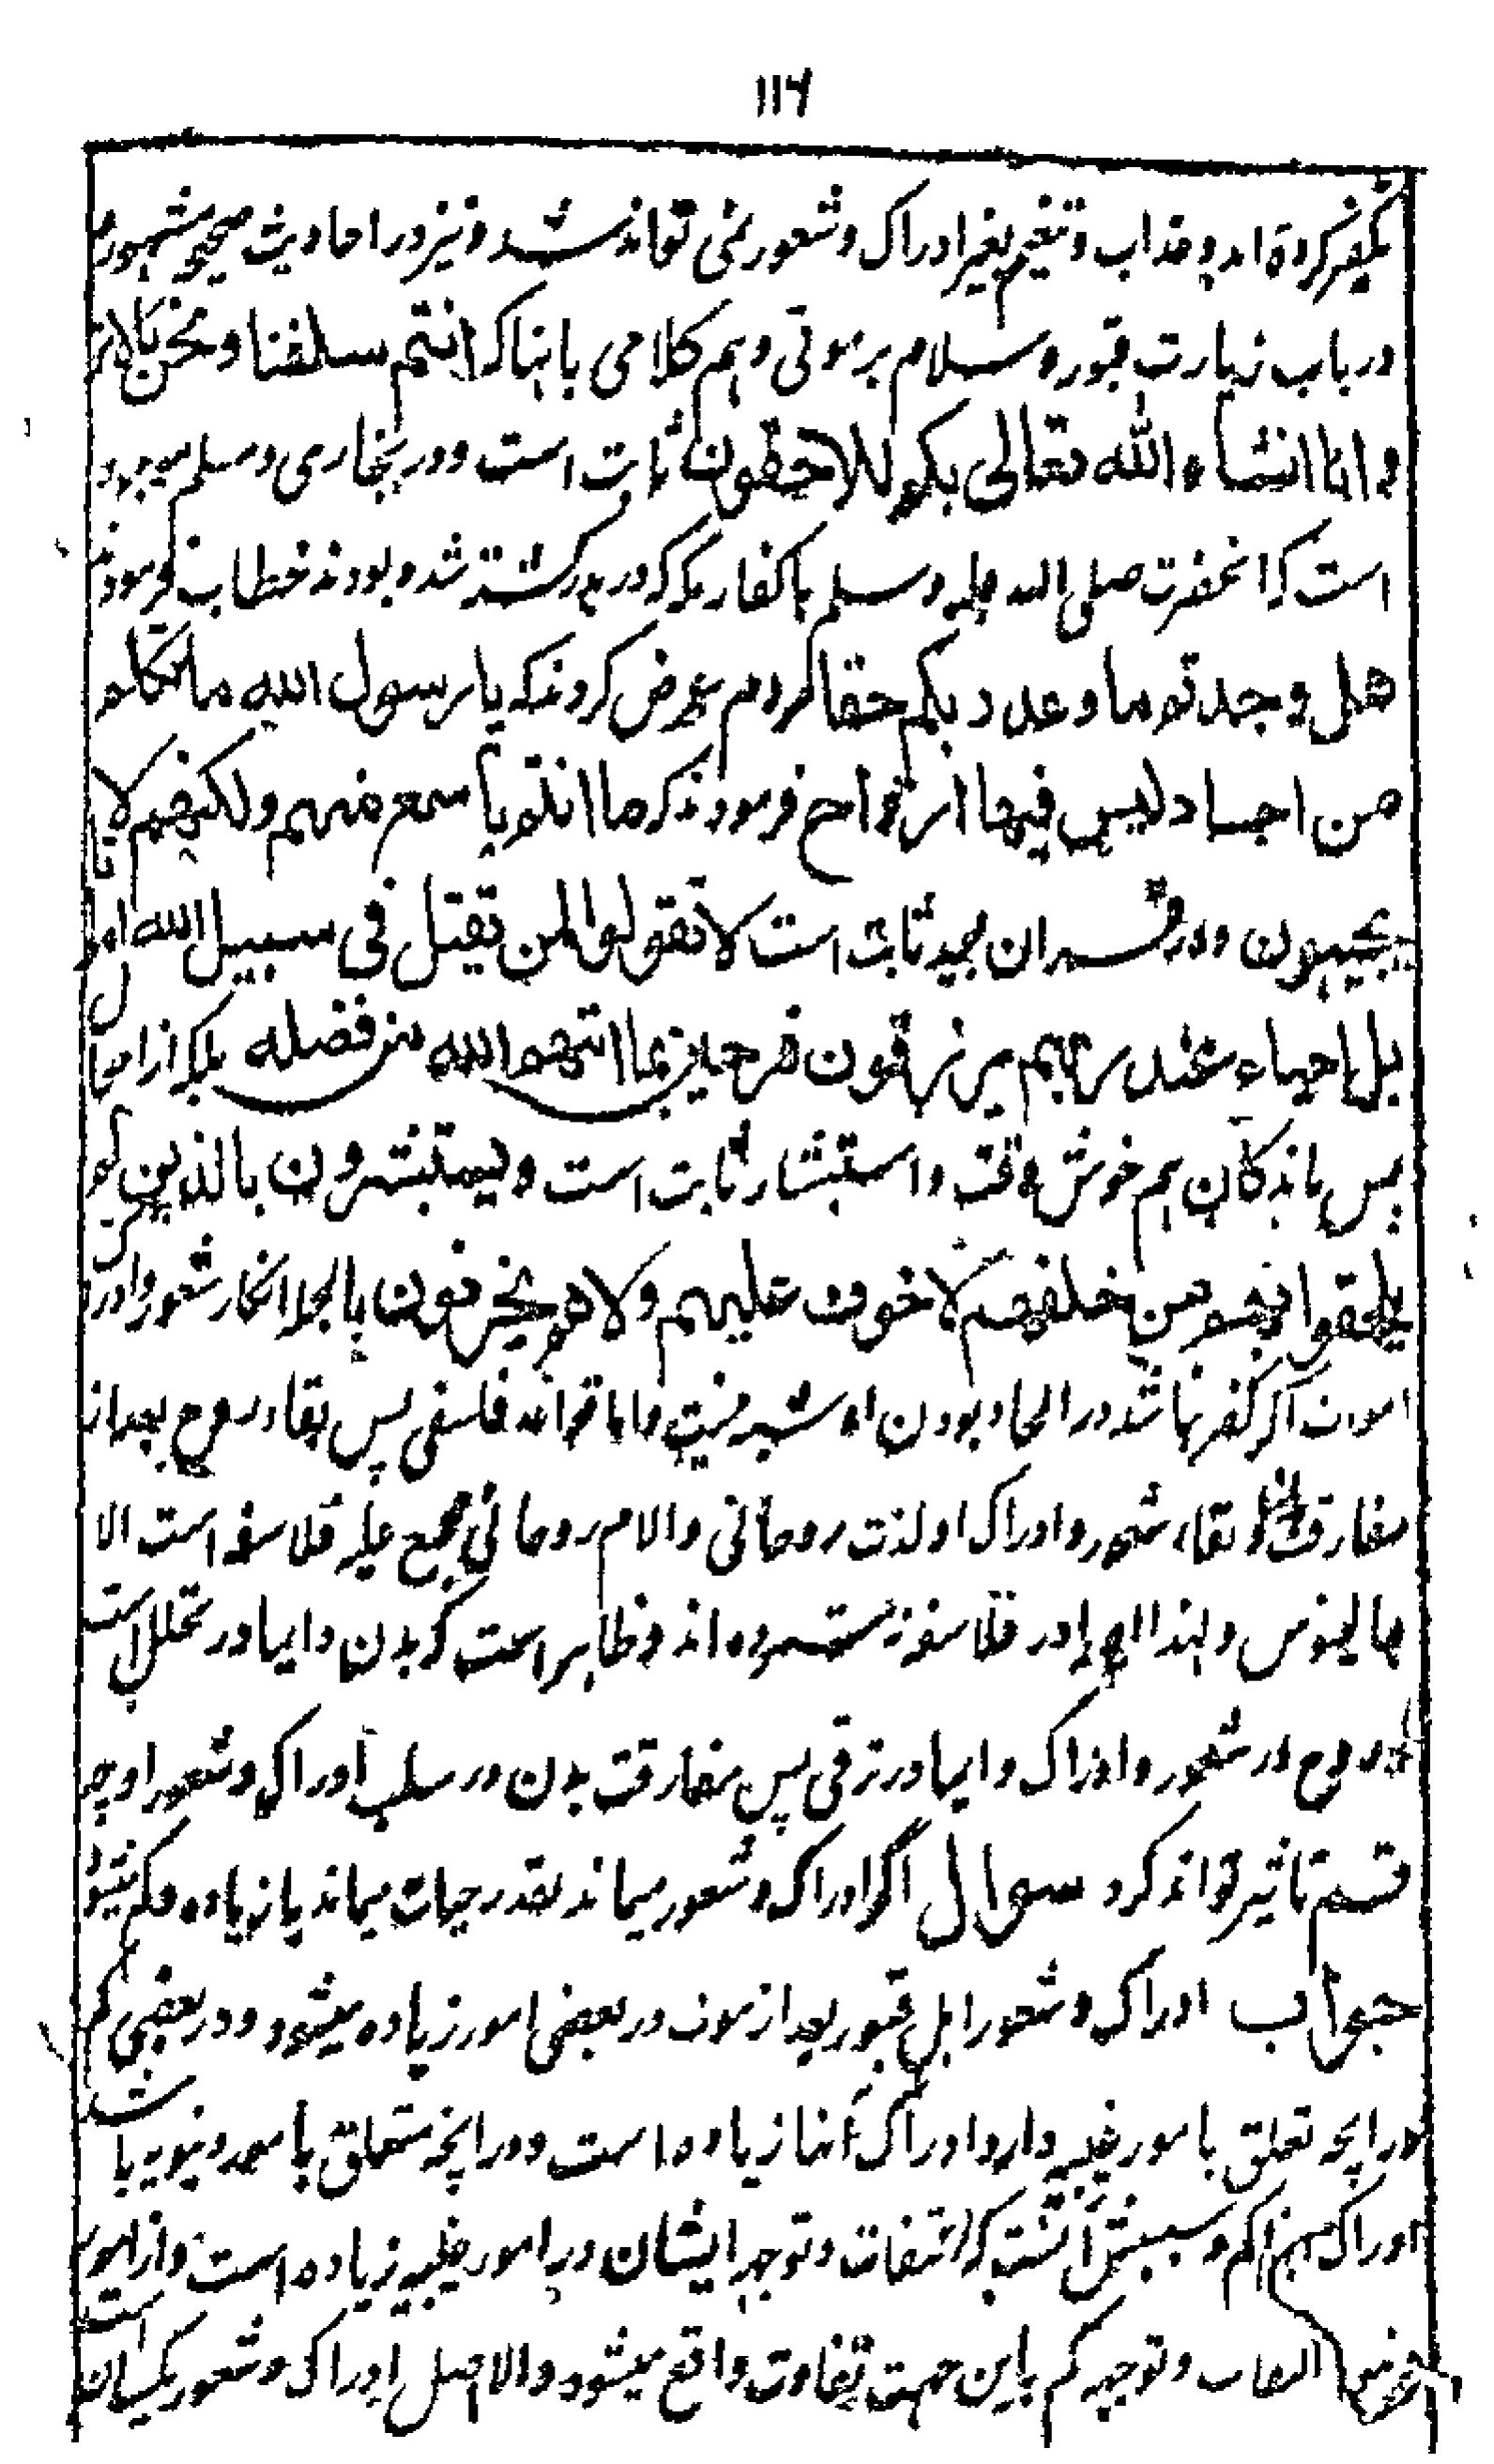 ۱۱۶
تکفیر کرده اند و عذاب و تنعیم بغیر ادراک و شعور نمی تواند شد و نیز در احادیث صحیح مشهوره
در باب زیارت قبور و سلام بر موتی و هم کلامی بانها که انتم سلفنا و نحن بالاثر
و انا انشاء الله تعالی بکم للاحقون ثابت است و در بخاری و مسلم موجود
است که انحضرت صلی الله علیه وسلم با کفار مکه که در بدر کشته شده بودند خطاب فرمودند
هل وجدتم ما وعد ربکم حقا مردم عرض کردند که یا رسول الله ما تتکلم
من اجساد لیس فیها ارواح فرمودند که ما انتم باسمع منهم ولکنهم لا
یجیبون و در قران مجید ثابت است لا تقولوا لمن یقتل فی سبیل الله اموا تا
بل احیاء عند ربهم یرزقون فرحین بما اتهم الله من فضله بلکه از احوال
پس ماندکان هم خوش وقت و استبشار ثابت است و یستبشرون بالذین لم
یلحقوا بهم من خلفهم لا خوف علیهم ولا هم یحزنون بالجمله انکار شعور و ادراک
اموات اگر کفر نباشد در الحاد بودن او شبه نیست و اما قواعد فلسفی پس بقاء روح بعد از
مفارقت و بقاء شعور و ادراک او لذت روحانی و الام روحانی مجمع علیه فلاسفه است الا
جالینوس و لهذا او را در فلاسفه نشمرده اند و ظاهر است که بدن دایما در تحلل است
و روح در شعور و ادراک دایما در ترقی پس مفارقت بدن در سلب ادراک و شعور او چه
قسم تاثیر تواند کرد سوال اگر ادراک و شعور میماند بقدر حیات میماند یا زیاده و کم میشود
جواب ادراک و شعور اهل قبور بعد از موت در بعضی امور زیاده میشود و در بعضی کم
در انچه تعلق بامور غیبیه دارد ادراک انها زیاده است و در انچه متعلق بامور دنیویه باشد
ادراک انها کم و سببش آنست که التفات و توجه ایشان در امور غیبیه زیاده است و از امور
التفات و توجه کم باین جهت تفاوت واقع میشود و الا اصل ادراک و شعور یکسان است